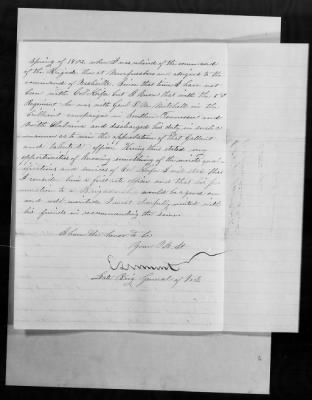 Spring of 1862 when I was relieved of the command
of the Brigade then at Murfreesboro and assigned to the
command of Nashville. Since that time I have not
been with Col but I know that with the
Regiment he was with Genl O. M. Mitchell in the
brilliant campaign in Southern Tennessee and
North Alabama and discharged his duties in such a
manner as to win the approbation of that gallant
and talented officer. Having thus stated my
opportunities of knowing something of the merits qual-
ifications and services of Col I will add that
I consider him a officer and that his pro-
motion to a Brigadier would be a good one
and well merited. I most cheerfully united with
his friends in recommending the same.
I have the honor to be
Your Obt. St.
Late Brig General of Vols